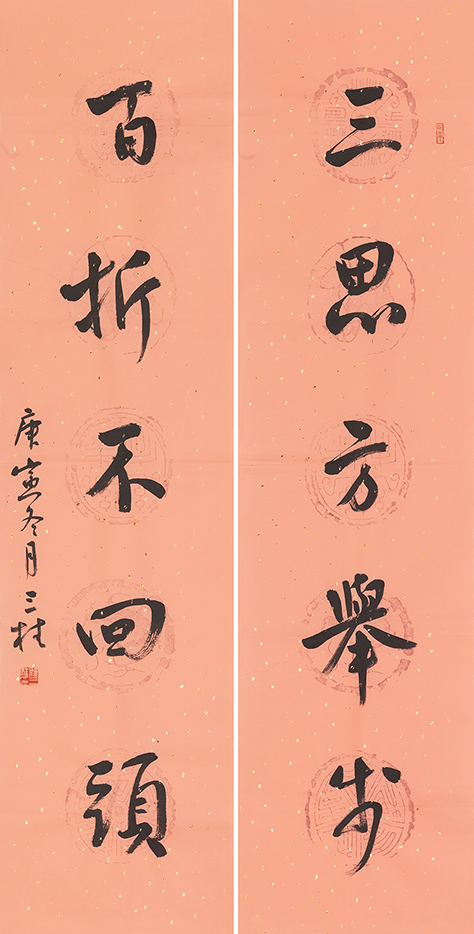 三思方舉步
百折不回頭
庚寅冬月三桂